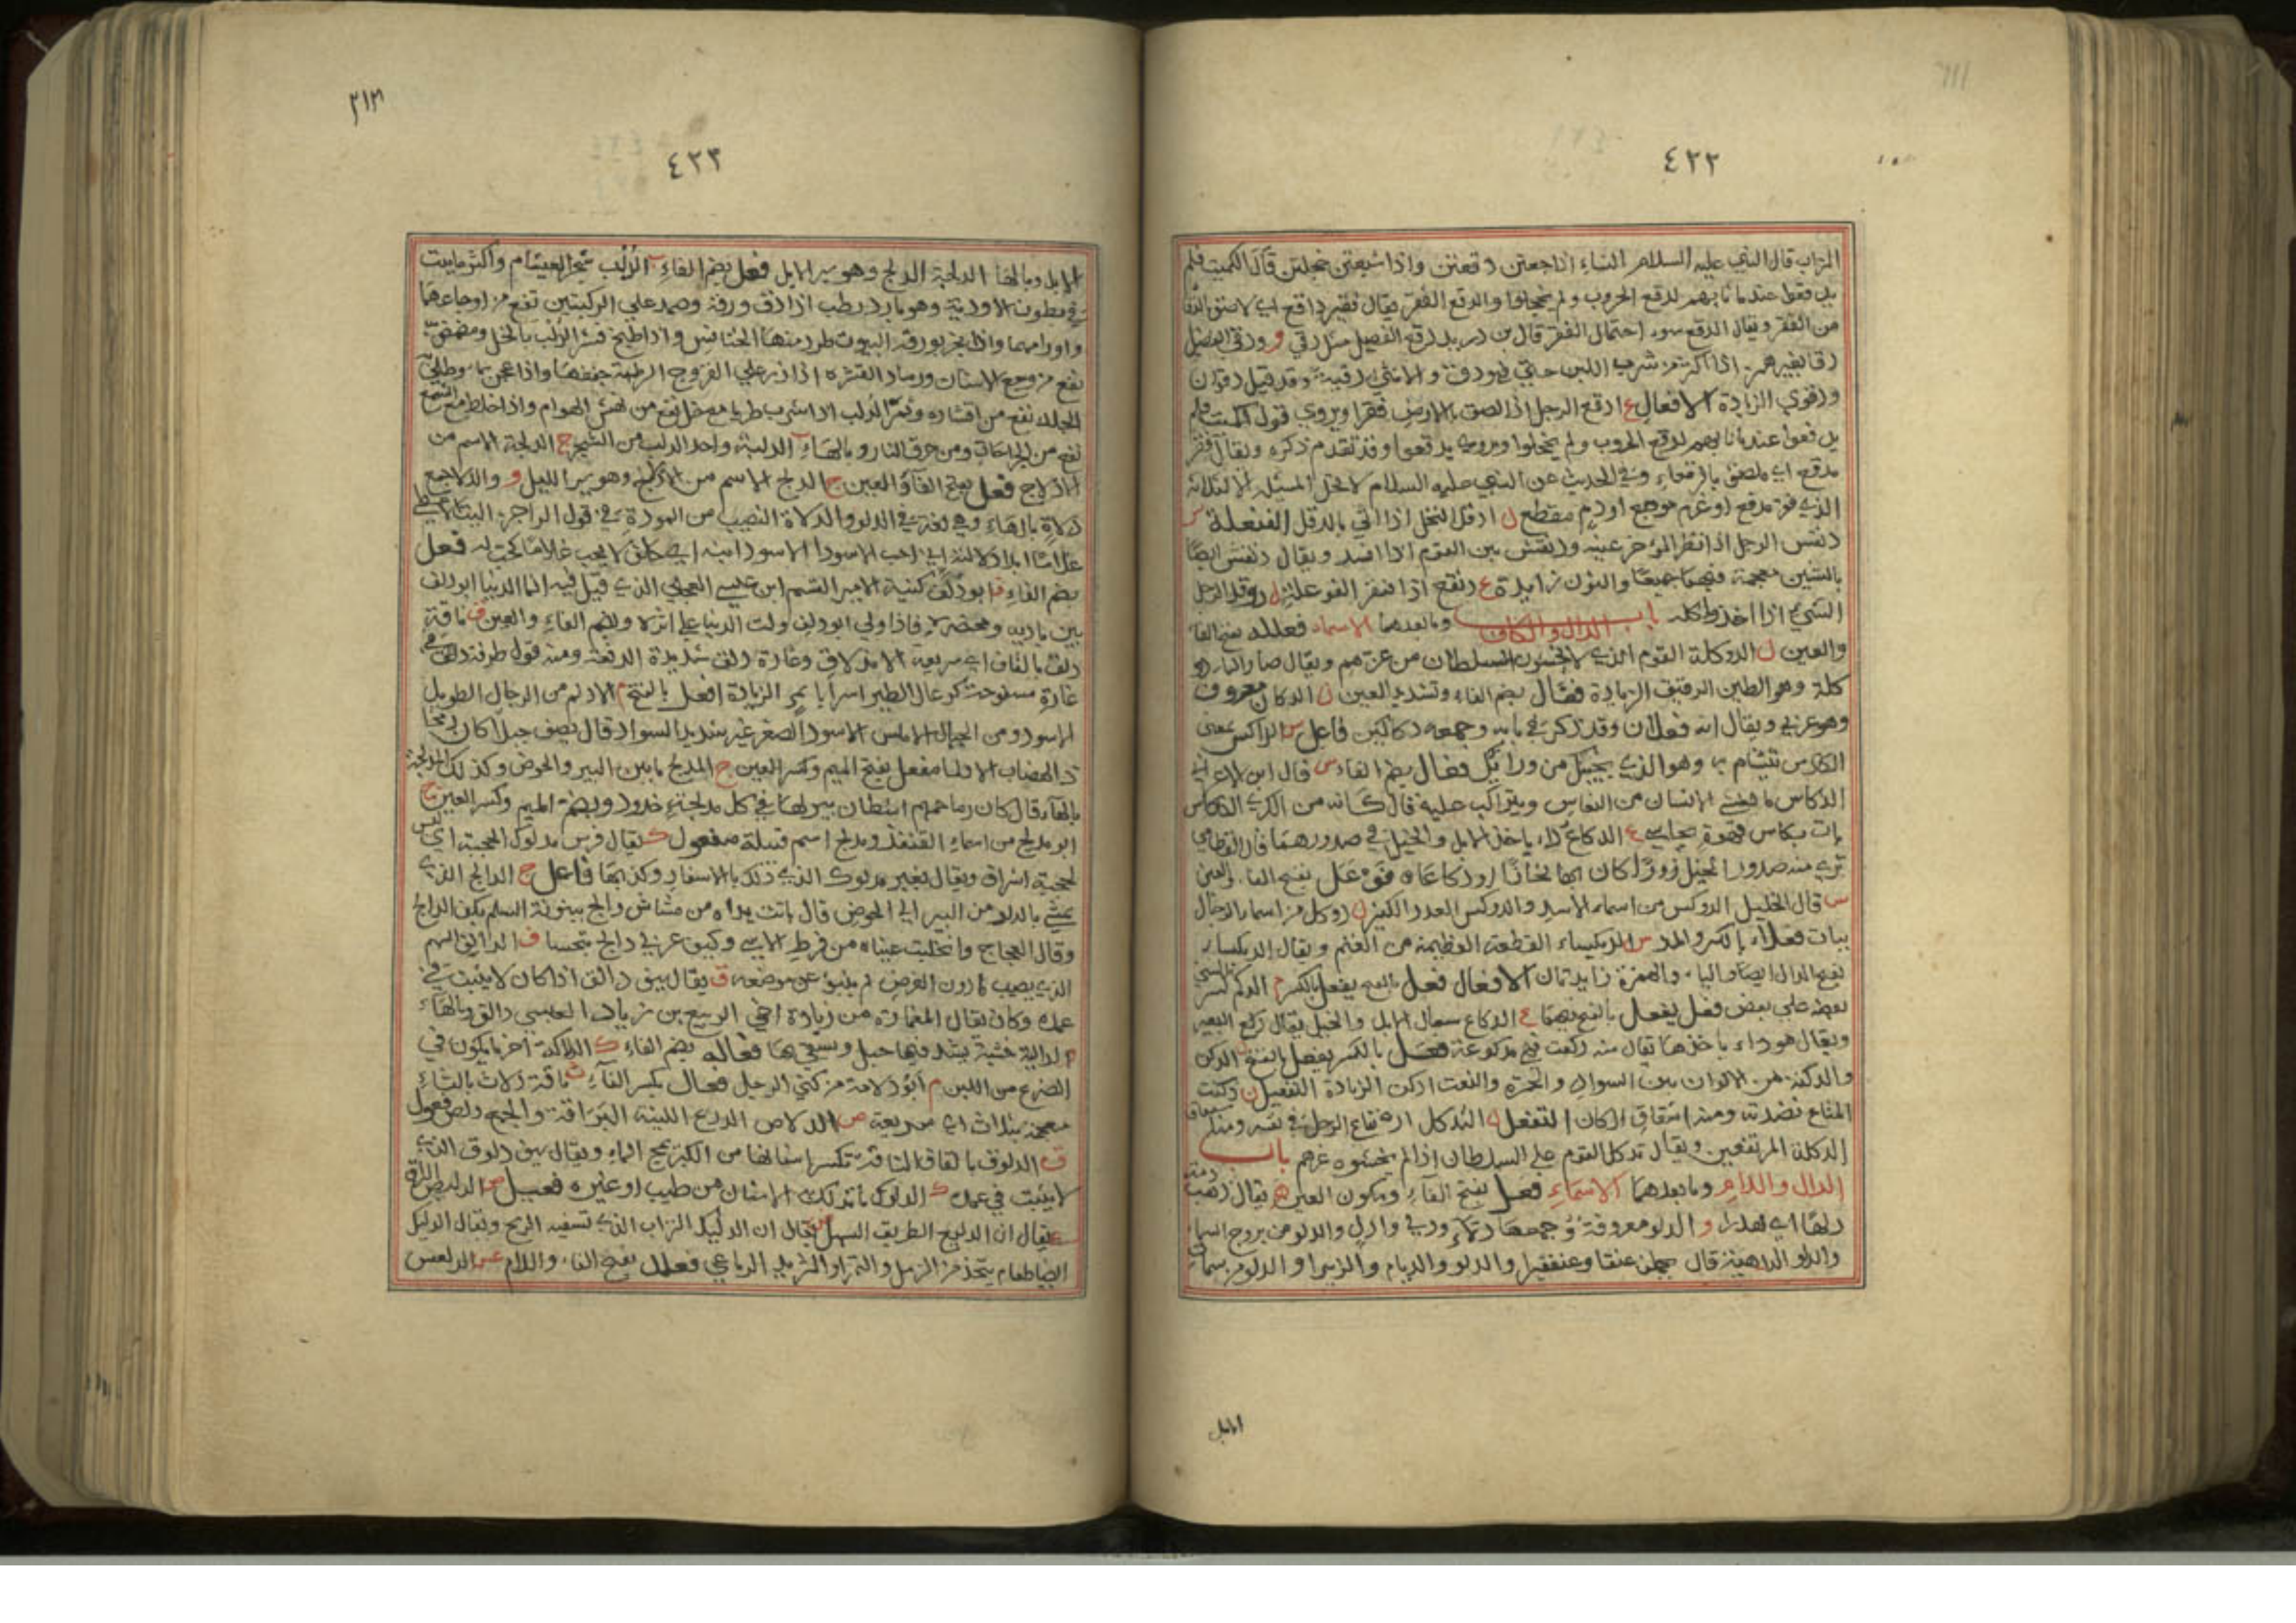 ٤٢٢
التراب قال النبي عليه السلام للنساء اذا جعتن دقعتن واذا شبعتن خجلتن قال الكميت فلم
يدقعوا عندما نابهم لدقع الحروب ولم يخجلوا والدقع الفقر يقال فقير داقع اي لاصق
من الفقر ويقال الدقع سوء احتمال الفقر قال بن دريد لدقع الفصيل مثل دقي و ودقي الفصيل
دقا بغير همز اذا اكثر من شرب اللبن حتي فهو دق والانثي دقية وقد قيل دقوان
ودقوي الزيادة الافعال ع ادقع الرجل اذا الصق بالارض فقرا ويروي قول الكميت فلم
يدقعوا عندما نابهم لدقع الحروب ولم يخجلوا ويروي يدقعوا وقد تقدم ذكره ويقال فقر
مدقع اي ملصق بالدقعاء وفي الحديث عن النبي عليه السلام لا تحل المسئلة الا لثلاثة
الذي فقر مدقع او غرم موجع او دم مقطع ل ادقل النخل اذا اتي بالدقل الفنعلة س
دنقس الرجل اذا نظر المؤخر عينه ودنقس بين القوم اذا افسد ويقال دنقش ايضا
بالشين معجمة فيهما جميعا والنون زايدة ع دنقع اذا افتقر الفوعلة ل دوقل الرجل
الشيء اذا اخذه واكله باب الدال والكاف وما بعدهما الاسماء فعللة بفتح الفاء
والعين ل الدوكلة القوم الذي لا يخشون السلطان من عزهم ويقال صار الماء دو
كلة وهو الطين الرقيق الزيادة فعال بضم الفاء وتشديد العين ن الدكان معروف
وهو عربي ويقال انه فعلان وقد ذكر في بابه وجمعه دكاكين فاعل س الداكس بمعني
الكادس تتشام به وهو الذي يجيئك من ورائك فعال بضم الفاء س قال ابن الاعرابي
الدكاس ما يغشي الانسان من النعاس ويتراكب عليه قال كانه من الكري الدكاس
بات بكاس قهوة يحاسي ع الدكاع داء ياخذ الابل والخيل في صدورهما قال القطامي
تري منه صدور الخيل زورا كان بها نحازا او دكاعا فوعل بفتح الفاء والعين
س قال الخليل الدوكس من اسماء الاسد والدوكس العدد الكثير ل دوكل من اسماء الرجال
ببات فعلاء بالكسر والمد س الديكساء القطعة العظيمة من الغنم ويقال الديكساء
بفتح الدال ايضا والياء والهمزة زايدتان الافعال فعل بالفتح يفعل بالكسر م الدكم كسر الشيء
بعضه علي بعض فعل يفعل بالفتح فيهما ع الدكاع سعال الابل والخيل يقال دكع البعير
ويقال هو داء ياخذها يقال منه دكعت فهي مدكوعة فعل بالكسر يفعل بالفتح ن الدكن
والدكنة من الالوان بين السواد والحمرة والنعت ادكن الزيادة التفعيل ن دكنت
المتاع نضدته ومنه اشتقاق الدكان التفعل ل التدكل ارتفاع الرجل في نفسه ومنه
الدكلة المرتفعين ويقال تدكل القوم علي السلطان اذا لم يخشوه عزهم باب
الدال واللام وما بعدهما الاسماء فعل بفتح الفاء وسكون العين ه يقال ذهب دمه
دلها اي هدرا و الدلو معروفة وجمعها دلاء ودلي وادل والدلو من بروج السماء
والدلو الداهية قال يحملن عنقا وعنقفيرا والدلو والديلم والزفيرا والدلو من سمات
الابل
٢١٣
٤٢٣
الابل وبالهاء الدلجة الدلج وهو سير الليل فعل بضم الفاء ب الدلب شجر العيثام واكثر ما ينبت
في بطون الاودية وهو بارد رطب اذا دق ورقه وضمد علي الركبتين نفع من اوجاعهما
واورامهما واذا بخر بورقه البيوت طرد منها الخنافس واذا طبخ قشر الدلب بالخل ومضمض به
نفع من وجع الاسنان ورماد القشرة اذا ذر علي القروح الرطبة جففها واذا عجن بماء وطلي به
الجلد نفع من اقشاره وثمر الدلب اذا شرب طريا مع خل نفع من نهش الهوام واذا خلط مع الشمع
نفع من الجراحات ومن حرق النار وبالهاء ب الدلبة واحد الدلب من الشجر ج الدلجة الاسم من
الادلاج فعل بفتح الفاء والعين ج الدلج الاسم من الادلج وهو سير الليل و والدلا جمع
دلاة بالهاء وهي لغة في الدلو والدلاة النصيب من المودة في قول الراجز
فعل
بضم الفاء ف ابو دلف كنية الامير القسم ابن عيسي العجلي الذي قيل فيه انما الدنيا ابو دلف
بين باديه ومحتضره فاذا ولي ابو دلف ولت الدنيا علي اثره وبضم الفاء والعين ق ناقة
دلق بالقاف اي سريعة الاندلاق وغارة دلق شديدة الدفعة ومنه قول طرفة دلق في
غارة مسفوحة كرعال الطير اسرابا تمر الزيادة افعل بالفتح م الادلم من الرجال الطويل
الاسود ومن الجبال الاملس الاسود الصغر غير شديد السواد قال يصف جبلا كان دمخا
ذا الهضاب الادلما مفعل بفتح الميم وكسر العين ج المدلج ما بين البير والحوض وكذلك المدلجة
بالهاء قال كان رماحهم اشطان بير لها في كل مدلجة خدود وبضم الميم وكسر العين ج
ابو مدلج من اسماء القنفذ ومدلج اسم قبيلة مفعول ك يقال فرس مدلوك الحجبة اي ليس
لحجبته اشراف ويقال بعير مدلوك الذي ذلك بالاسفار وكذ بها فاعل ج الدالج الذي
يمشي بالدلو من البير الي الحوض قال باتت يداه من مشاش والج بينونة السلم بكف الدالج
وقال العجاج وانحلبت عيناه من فرط الاسي وكيف غربي دالج تبجسا ف الدالف السهم
الذي يصيب ما دون الغرض ثم ينبو عن موضعه ق يقال سيف دالق اذا كان لا يثبت في
غمده وكان يقال لعمارة من زيادة اخي الربيع بن زياد العبسي دالق وبالهاء
الدالية خشبة يشد فيها حبل ويسقي بها فعاله بضم الفاء ك الدلاكة آخر ما يكون في
الضرع من اللبن م ابو دلامة من كني الرجل فعال بكسر الفاء ث ناقة دلاث بالثاء
معجمة بثلاث اي سريعة ص الدلاص الدرع اللينة البراقة والجمع دلص فعول
ق الدلوق بالقاف الناقة تكسر اسنانها من الكبر تمج الماء ويقال سيف دلوق الذي
لا يثبت في غمده ك الدلوك ما تدلك به الانسان من طيب او غيره فعيل ص الدليص البراق
ع يقال ان الدليع الطريق السهل ك يقال ان الدليك التراب الذي تسفيه الريح ويقال الدليك
ايضا طعام يتخذ من الزبد والتمر او الثريد الرباعي فعلل بفتح الفاء واللام عس الدلعس